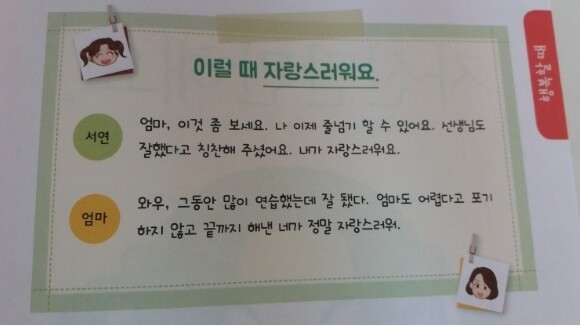 이럴 때 자랑스러워요.
행복할 때
서연
엄마, 이것 좀 보세요. 나 이제 줄넘기 할 수 있어요. 선생님도
잘했다고 칭찬해 주셨어요. 내가 자랑스러워요.
엄마
와우, 그동안 많이 연습했는데 잘 됐다. 엄마도 어렵다고 포기
하지 않고 끝까지 해낸 네가 정말 자랑스러워.